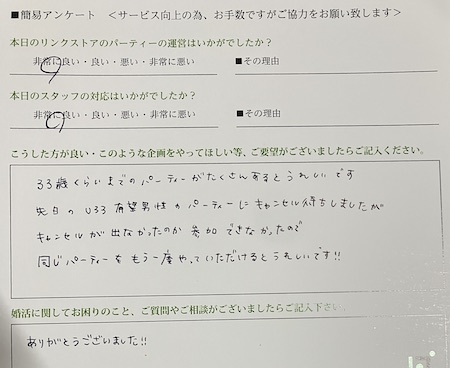 ■簡易アンケート <サービス向上の為、お手数ですがご協力をお願い致します>
本日のリンクストアのパーティーの運営はいかがでしたか?
非常に良い・良い・悪い・非常に悪い ■その理由
本日のスタッフの対応はいかがでしたか?
非常に良い・良い・悪い・非常に悪い ■その理由
こうした方が良い・このような企画をやってほしい等、ご要望がございましたらご記入ください。
33歳くらいまでのパーティーがたくさんあるとうれしいです
先日のU33有望男性のパーティーにキャンセル待ちしましたが
キャンセルが出なかったのか参加できなかったので
同じパーティーをもう一度やっていただけるとうれしいです!!
婚活に関してお困りのこと、ご質問やご相談がございましたらご記入下さい。
ありがとうございました!!